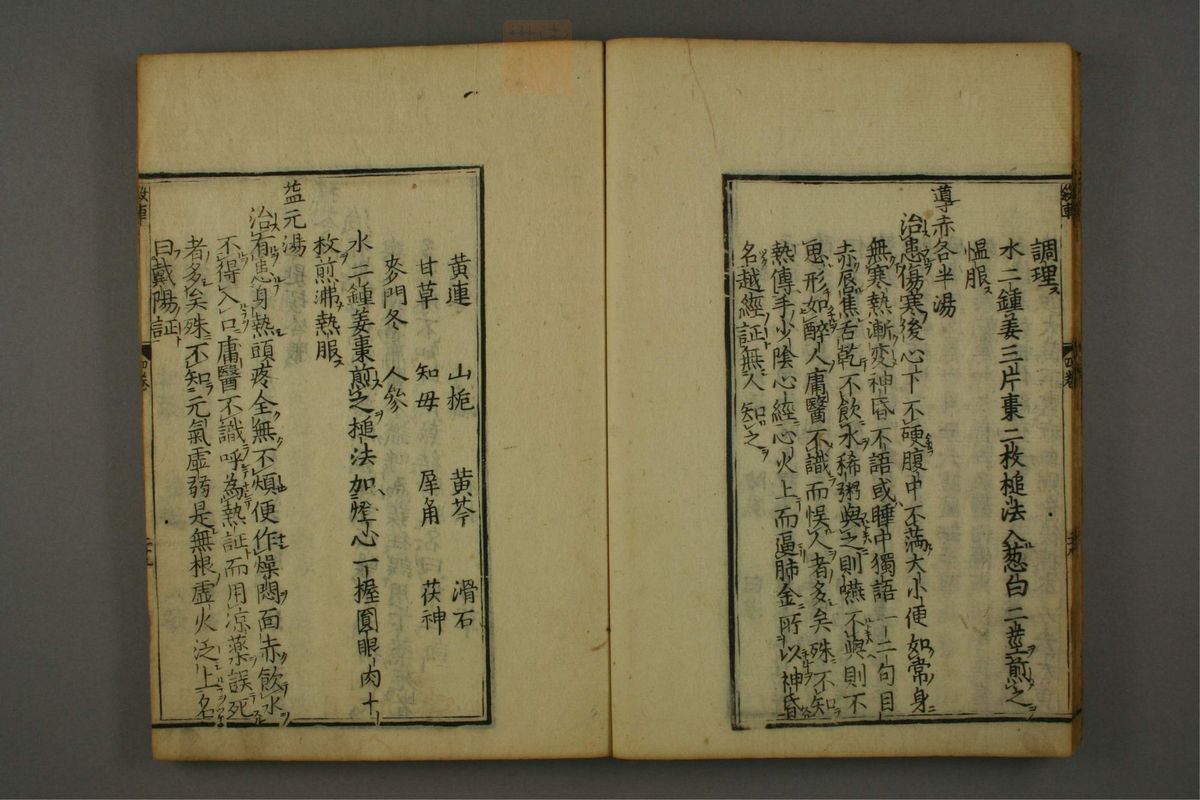 調理ス
水二鍾姜三片棗二枚槌法入葱白二莖煎之
慍服ス
導赤各半湯
治患傷寒後心下不硬腹中不満大小便如常身
無寒熱漸変神昏不語或睡中獨語一二句目
赤唇焦舌乾不飲水稀粥與之則嚥不與則不
思形如醉人庸醫不識而悞人者多矣殊不知
熱傳手少陰心經心火上而逼肺金所以神昏
名越經証無人知之
黄連 山梔 黄芩 滑石
甘草 知毋 犀角 茯神
麥門冬 人參
水二鍾姜棗煎之搥法加燈心一握圓眼肉十
枚煎沸熱服ス
益元湯
治有患身熱頭疼全無不煩便作燥悶面赤飲水
不得入口庸醫不識呼為熱証而用凉藥誤死
者多矣殊不知元氣虚弱是無根虚火泛上名
曰戴陽証